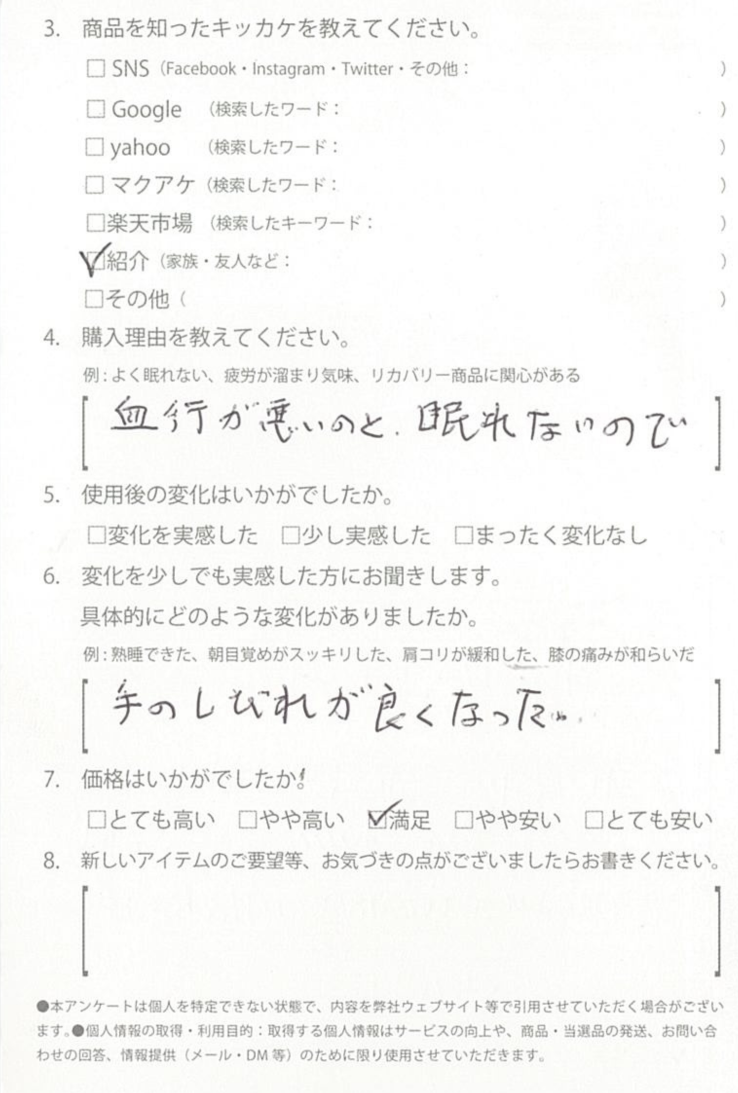 3. 商品を知ったキッカケを教えてください。
□ SNS（Facebook・Instagram・Twitter・その他： ）
□ Google （検索したワード： ）
□ yahoo （検索したワード： ）
□ マクアケ（検索したワード： ）
□楽天市場（検索したキーワード： ）
☑紹介（家族・友人など： ）
□その他（ ）
4. 購入理由を教えてください。
例：よく眠れない、疲労が溜まり気味、リカバリー商品に関心がある
血行が悪いのと、眠れないので
5. 使用後の変化はいかがでしたか。
□変化を実感した □少し実感した □まったく変化なし
6. 変化を少しでも実感した方にお聞きします。
具体的にどのような変化がありましたか。
例：熟睡できた、朝目覚めがスッキリした、肩コリが緩和した、膝の痛みが和らいだ
手のしびれが良くなった
7. 価格はいかがでしたか。
□とても高い □やや高い ☑満足 □やや安い □とても安い
8. 新しいアイテムのご要望等、お気づきの点がございましたらお書きください。
●本アンケートは個人を特定できない状態で、内容を弊社ウェブサイト等で引用させていただく場合がござい
ます。●個人情報の取得・利用目的：取得する個人情報はサービスの向上や、商品・当選品の発送、お問い合
わせの回答、情報提供（メール・DM 等）のために限り使用させていただきます。